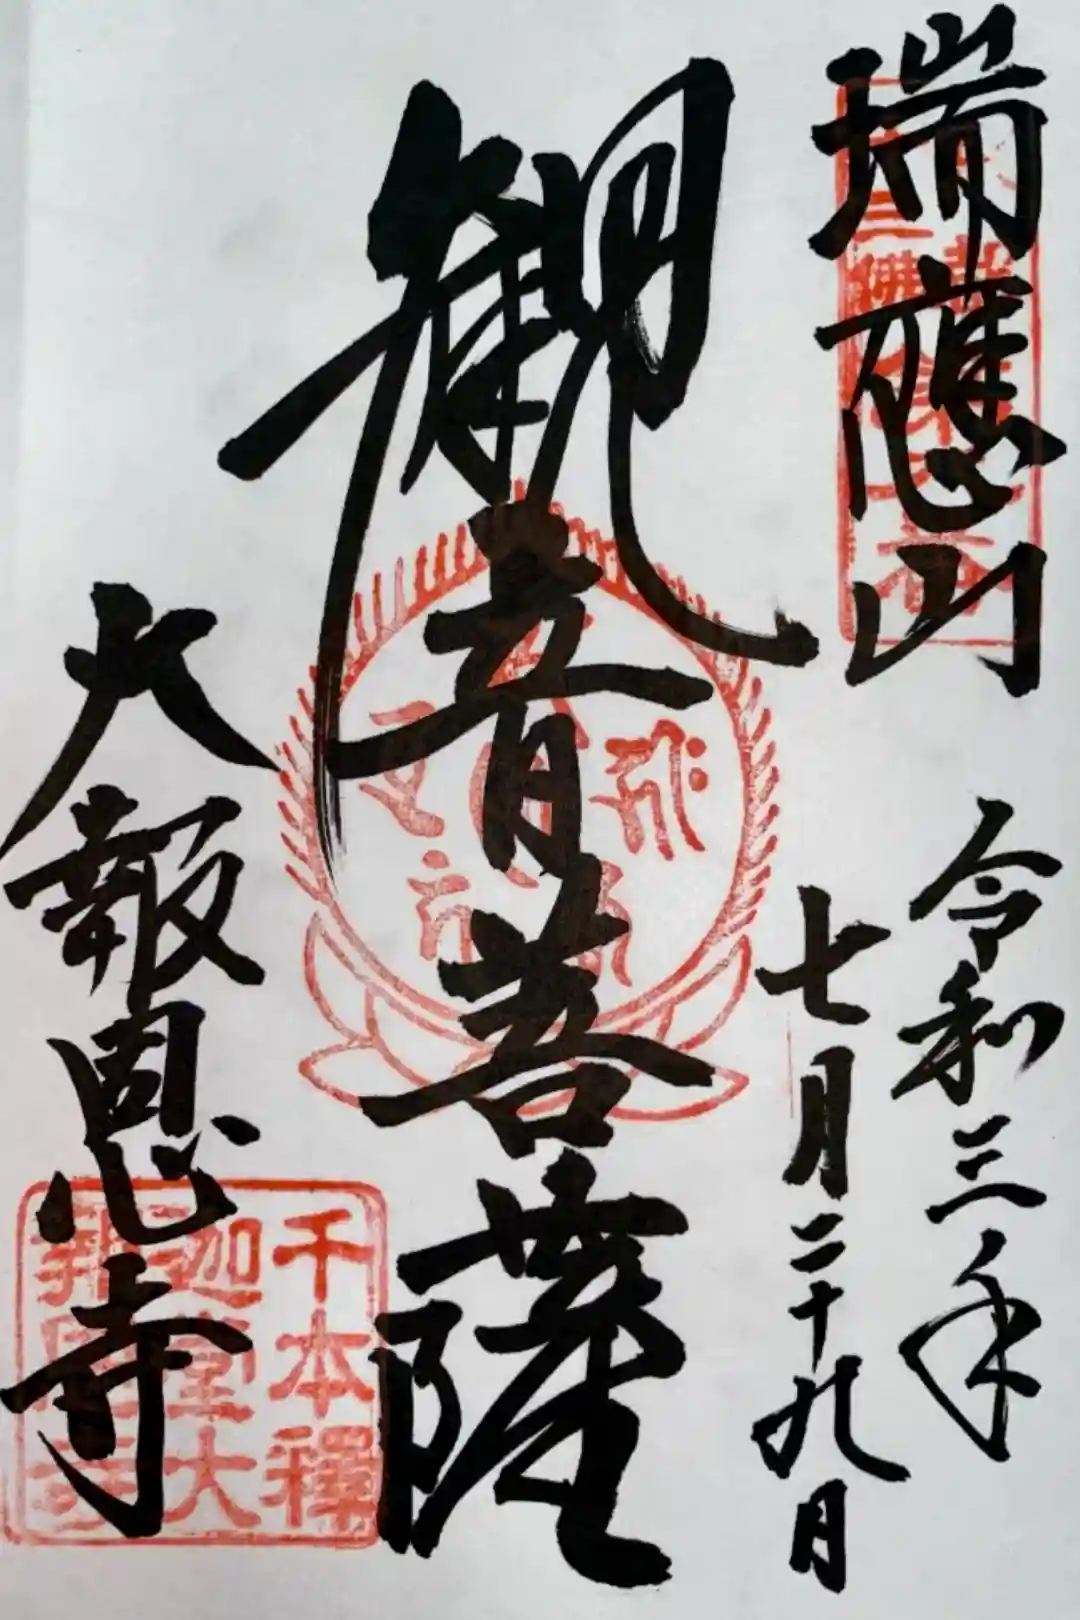 瑞應山
令和三年
七月二十九日
観音菩薩
大報恩寺
千本釋
迦堂大
報恩寺